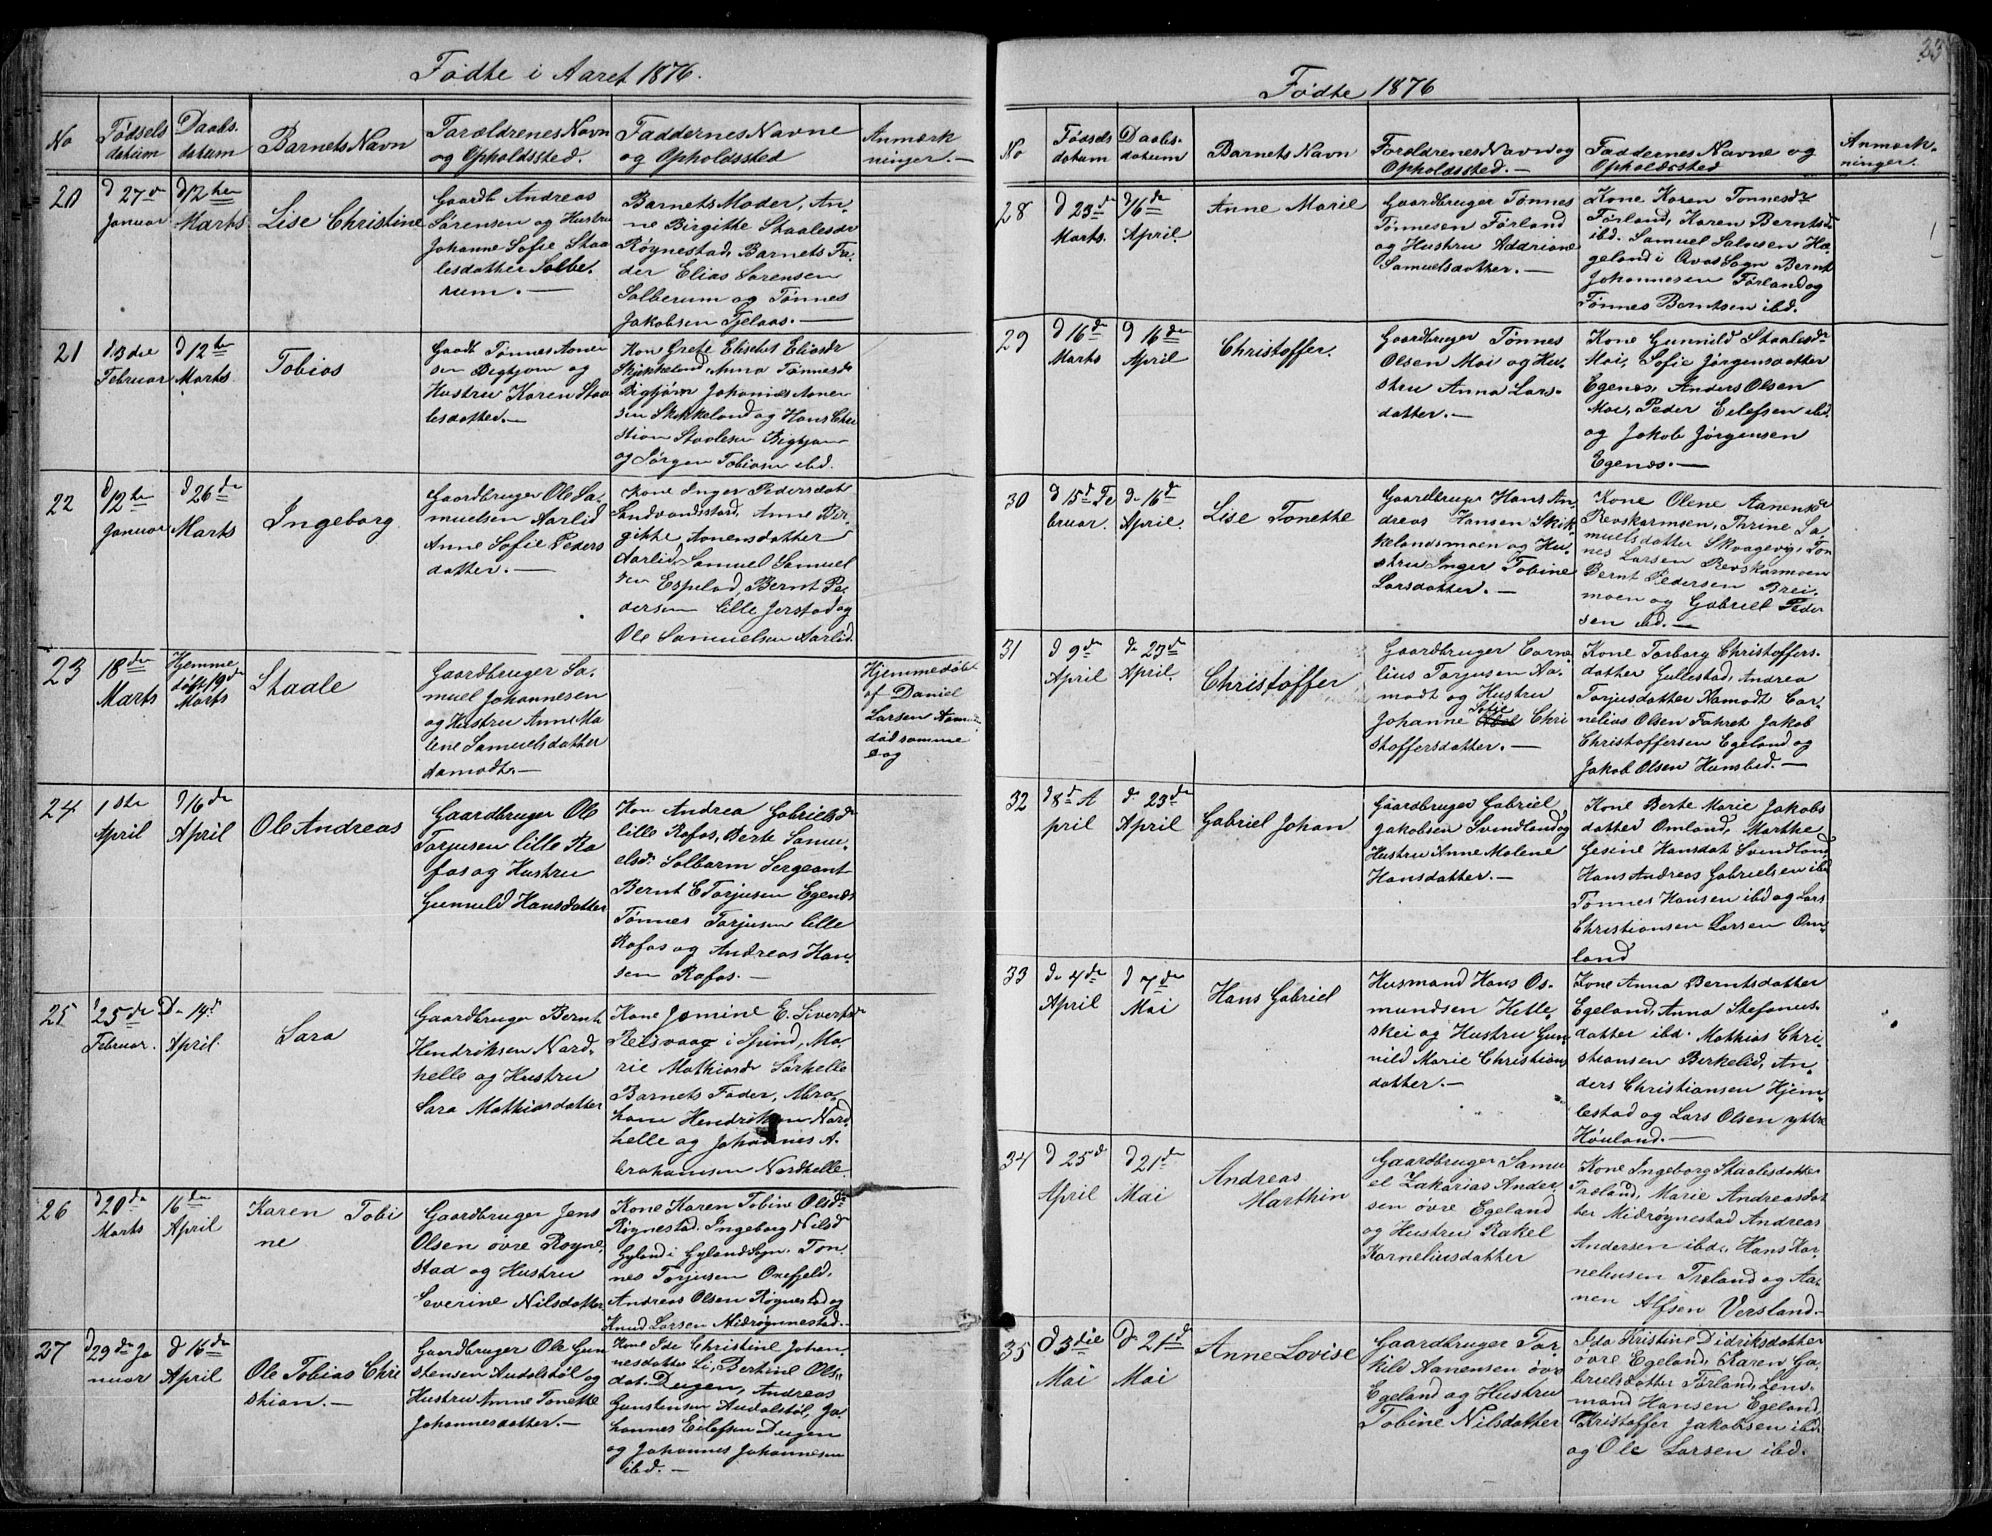 Fødte i Aaret 1876.
No
Fødsels
datum
Daabs.
datum
Barnets Navn
Forældrenes Navn
og Opholdssted.
Faddernes Navne
og Opholdssted
Anmærk
ninger. —
20
d 27de
Januar
d 12te
Marts
Lise Christine
Gaardb Andreas
Sørensen og Hustru
Johanne Sofie Staa
lesdatter Solbe.
rum. —
Barnets Moder, An-
ne Birgithe Staalesdr
Røynestad, Barnets Fa-
der Elias Sørensen
Solberum og Tønnes
Jakobsen Fjelaas. —
21
d. 3die
Februar
d 12te
Marts
Tobias
Gaardb Tønnes Aanen
sen Bigtjøm og
Hustru Karen Staa
lesdatter. —
Kon Grete Elisebet Eliasdr
Skjekkeland, Anna Tønnesdr
Bigtjøm Johannes Aanen
sen Skekkeland og Hans Chri
stian Staalesen Bigtjøm
og Jørgen Tobiasen ibd.
22
d 12te
Januar
d 26de
Marts
Ingeborg
Gaardbruger Ole Sa-
muelsen Aarlid
Anne Sofie Peders
datter. —
Kone Inger Pedersdat
Sandvandsstad, Anne Bir-
gitte Aanensdatter
Aarlid, Samuel Samuel
sen Espelad, Bernt Pe-
dersen lille Jerstad og
Ole Samuelsen Aarlid.
23
18de
Marts
Hjemme
døbt 19de
Marts
Staale
Gaardbruger Sa-
muel Johannesen
og Hustru Anne Ma
lene Samuelsdatter
Aamodt. —
Hjemmedøbt
af Daniel
Larsen Aamo
dad samme
Dag
24
1ste
April
d 16de
April
Ole Andreas
Gaardbruger Ole
Torjusen lille Ra
fos og Hustru
Gunnuld Hansdatter
Kon Andrea Gabrielsdr
lille Rafos, Berte Samu-
elsdr Solbarm Sergeant
Bernt E Torjusen Egenæs
Tønnes Torjusen lille
Rafos og Andreas Han-
sen Rafos. —
25
d 25de
Februar.
D. 14d
April.
Sara
Gaardbruger Bernt
Hendriksen Nord-
helle og Hustru
Sara Mathiasdatter
Kone Jomine E. Sivertsdr
Reisvaag i Spind, Ma-
rie Mathiasdr Sørhelle
Barnets Fader, Abra-
ham Hendriksen Nord-
helle og Johannes A-
brahamsen Nordhelle
26
d 20de
Marts
16de
April
Karen Tobi
ne
Gaardbruger Jens
Olsen øvre Røyne-
stad og Hustru
Severine Nilsdatter
Kone Karen Tobine Olsdr
Røgnestad. Ingeborg Nilsd
Gyland i Gyland Sogn. Tøn-
nes Torjusen Oxefjeld.
Andreas Olsen Røgnestad og
Knud Larsen Midrøgnestad.
27
d 29de Ja
nuar
d 16de
April
Ole Tobias Chri
stian. —
Gaardbruger Ole Gun
stensen Audalstøl og
Hustru Anne Tonette
Johannesdatter. —
Kone Ide Christine Johan-
nesdatter Li, Bertine Ols-
dat. Dugen, Andreas
Gunstensen Audalstøl, Jo-
hannes Eilefsen Dugen
og Johannes Johannesen
ibd. —
33
Fødte 1876
No
Fødsels
datum
Daabs-
datum
Barnets Navn
Forældrenes Navn og
Opholdssted. —
Faddernes Navne og
Opholdssted
Anmærk-
ninger.
28
d 23de
Marts.
d 16de
April.
Anne Marie
Gaardbruger Tønnes
Tønnesen Førland
og Hustru Addriane
Samuelsdatter. —
Kone Karen Tønnesdr
Førland, Karen Berntsd
ibd. Samuel Salvesen Hæ-
geland i Qvas Sogn Bernt
Johannesen Førland og
Tønnes Berntsen ibd.
29
d 16de
Marts
d 16de
April
Christoffer.
Gaardbruger Tønnes
Olsen Moi og Hu-
stru Anna Lars-
datter. —
Kone Gunnild Staalesdr
Moi, Sofie Jørgensdatter
Egenæs, Anders Olsen
Moi, Peder Eilefsen ibd.
og Jakob Jørgensen
Egenæs. —
30
d 15d Fe
bruar.
d. 16d
April.
Lise Tonette
Gaardbruger Hans An-
dreas Hansen Skik-
kelandsmoen og Hu-
stru Inger Tobine
Larsdatter. —
Kone Olene Aanensdr
Revskarmoen, Thrine Sa-
muelsdatter Skvagevig, Tøn
nes Larsen Revskarmoen
Bernt Pedersen Brei-
moen og Gabriel Peder
sen ibd. —
31
d 9de
April
d. 23de
April.
Christoffer
Gaardbruger Corne-
lius Torjusen Aa-
modt og Hustru
Johanne Sofie Chri
stoffersdatter. —
Kone Torborg Christoffers-
datter Gullestad, Andrea
Torjusdatter Aamodt Cor-
nelius Olsen Fahret Jakob
Christoffersen Egeland og
Jakob Olsen Hunsbed. —
32
d 8de A
pril
d. 23de
April
Gabriel Johan
Gaardbruger Gabriel
Jakobsen Svindland og
Hustru Anne Malene
Hansdatter. —
Kone Berte Marie Jakobs
datter Omland, Marthe
Gesine Hansdat Svindland
Hans Andreas Gabrielsen ibd
Tønnes Hansen ibd og Lars
Christiansen Larsen Om-
land
33
d. 4de
April
d 7de
Mai
Hans Gabriel
Husmand Hans Os-
mundsen Helle-
skei og Hustru Gun-
nild Marie Christians
datter. —
Kone Anna Berntsdatter
Egeland, Anna Stefanus-
datter ibd. Mathias Chri-
stiansen Birkelid, An-
ders Christiansen Hjem-
lestad og Lars Olsen yttre
Høiland. —
34
d 25d
April
d 21de
Mai
Andreas
Marthin
Gaardbruger Samu
el Zakarias Ander-
sen øvre Egeland
og Hustru Rakel
Korneliusdatter
Kone Ingeborg Staalesdatter
Træland, Marie Andreasdat
ter Midrøgnestad Andreas
Andersen ibd. Hans Kor-
neliusen Træland og Aa-
nen Alfsen Versland. —
35
d 3die
Mai
D. 21d
Mai
Anne Lovise
Gaardbruger Tor
kild Aanensen øvre
Egeland og Hustru
Tobine Nilsdatter
Ida Kristine Didriksdatter
øvre Egeland, Karen Ga-
brielsdatter Førland, Lens-
mand Hansen Egeland,
Kristoffer Jakobsen ibd
og Ole Larsen ibd.